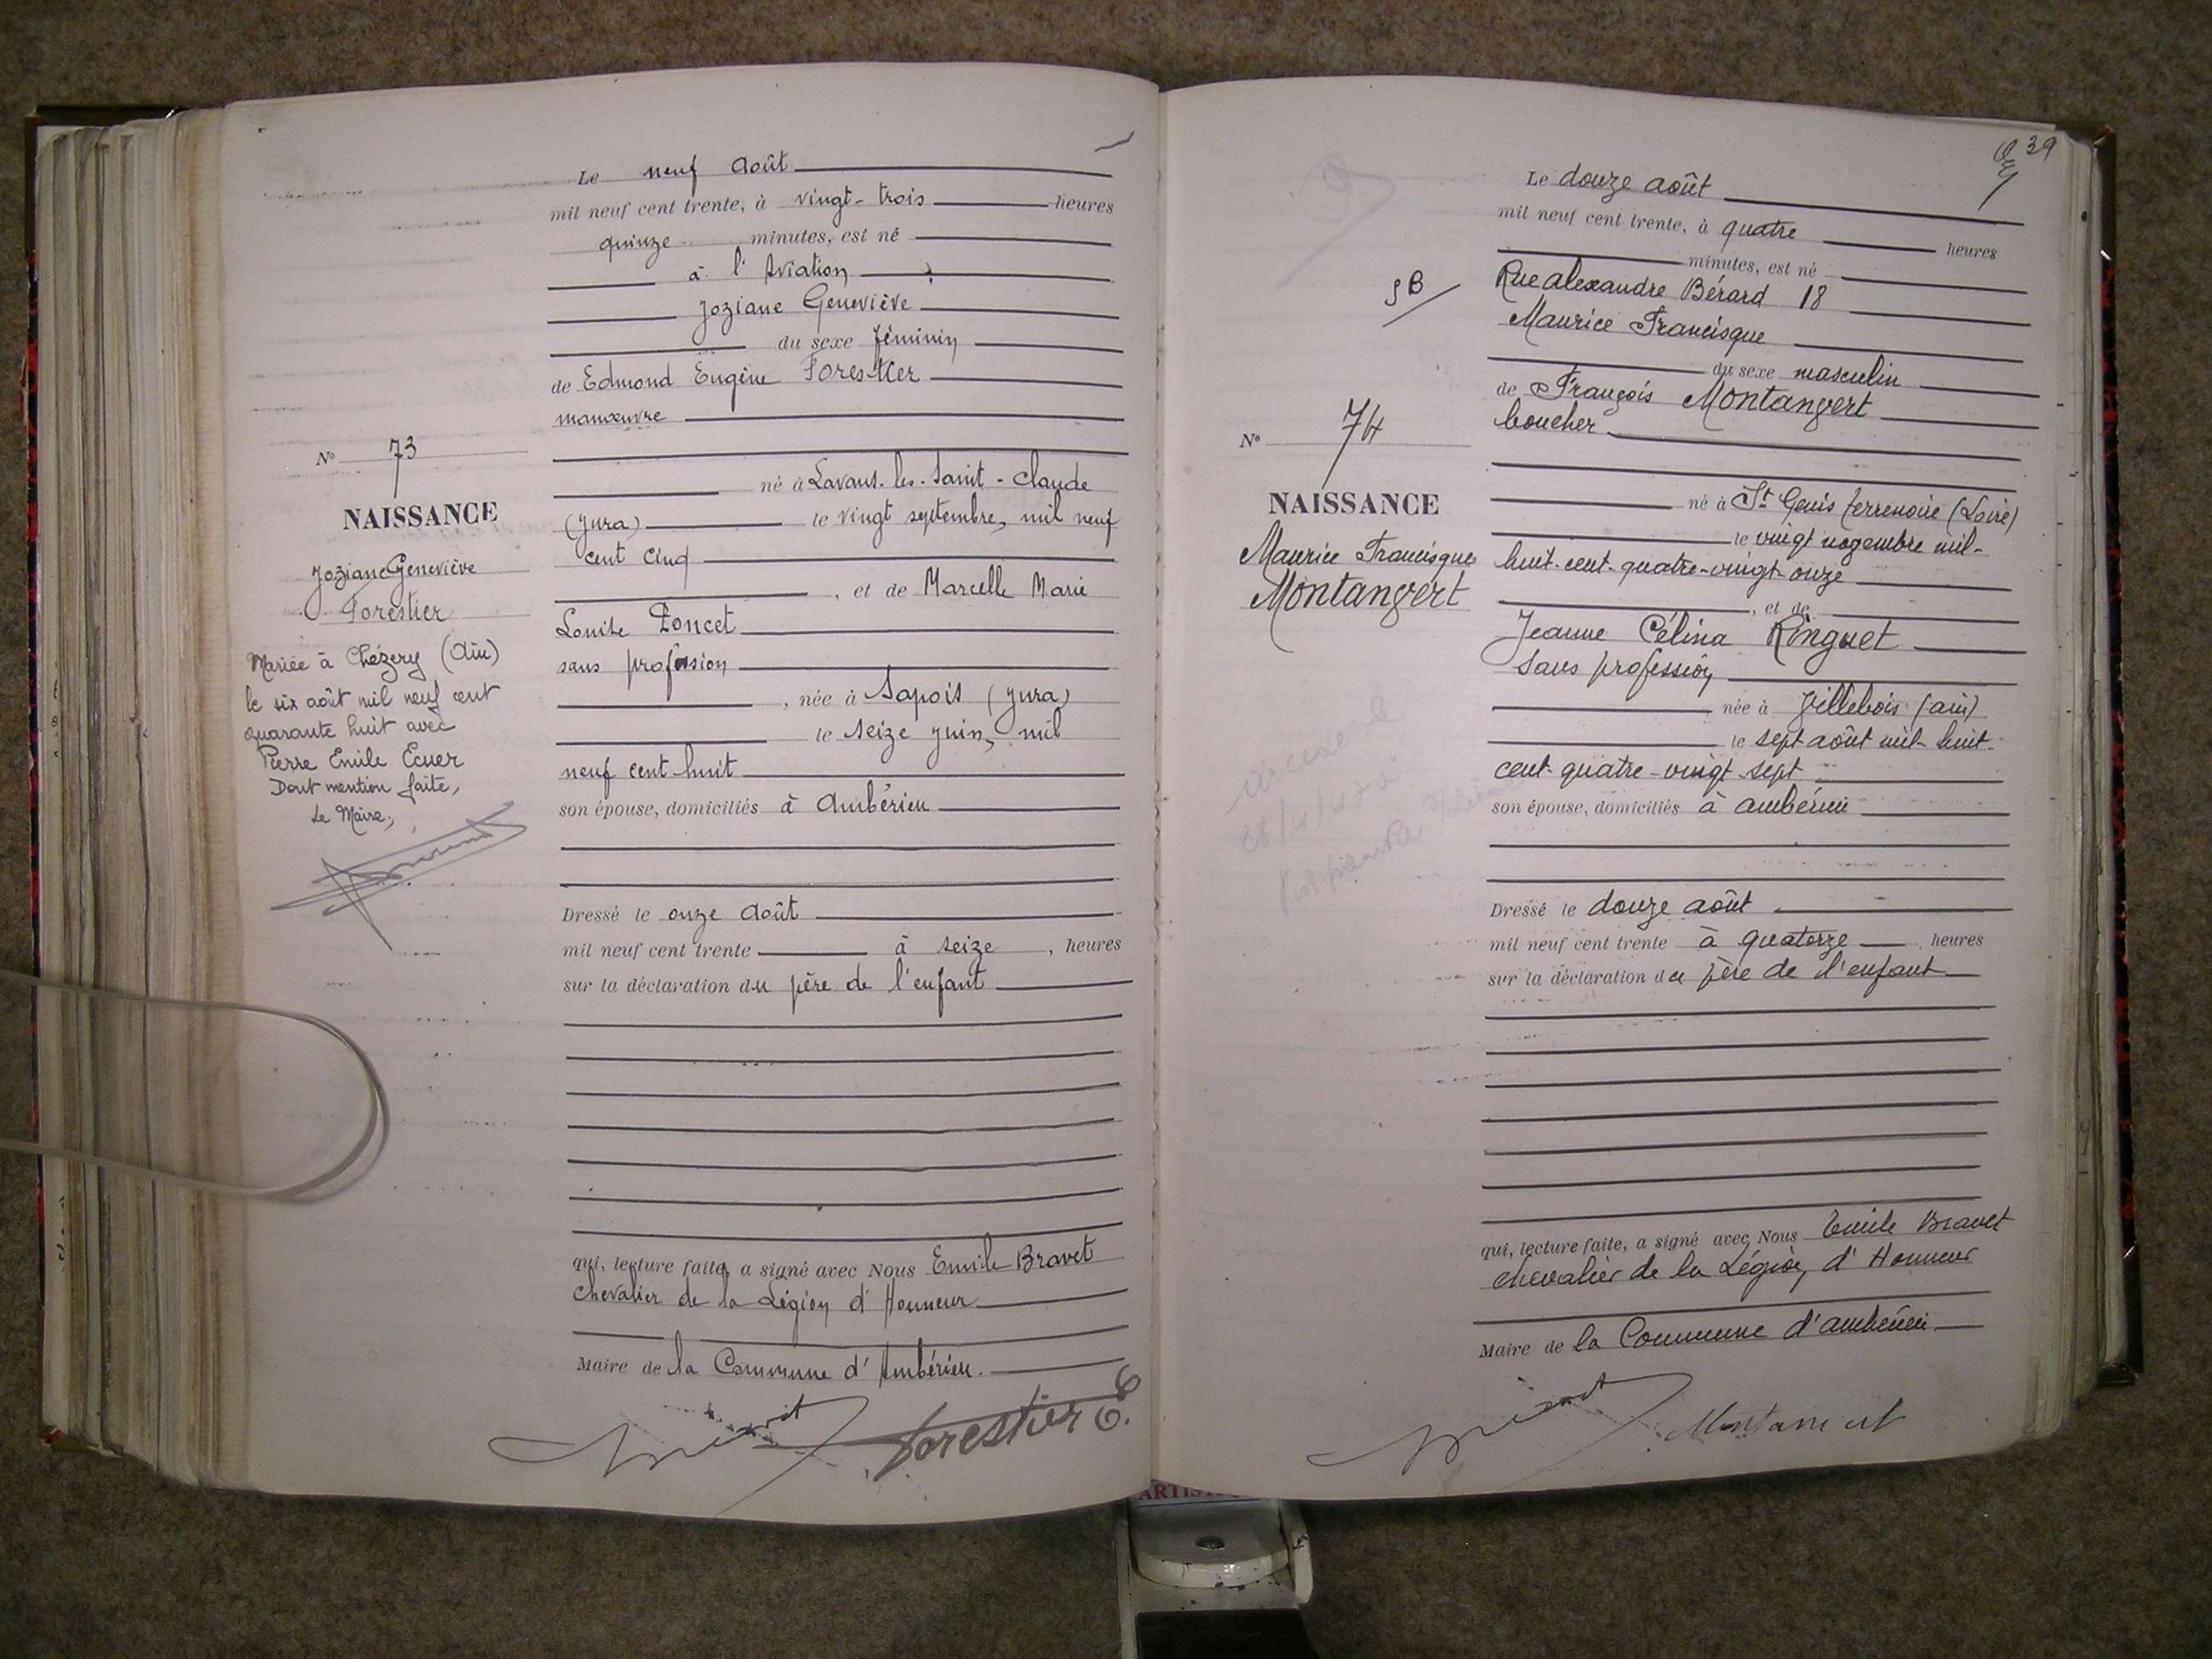 Le neuf Août
mil neuf cent trente, à vingt-trois heures
quinze minutes, est né
à l'Aviation
Joziane Geneviève
du sexe féminin
de Edmond Eugène Forestier
manœuvre
né à Lavans-les-Saint-Claude
(Jura) le vingt septembre, mil neuf
cent cinq
, et de Marcelle Marie
Louise Poncet
sans profession
, née à Sapois (Jura)
le seize juin, mil
neuf cent huit
son épouse, domiciliés à Ambérieu
Dressé le onze Août
mil neuf cent trente à seize , heures
sur la déclaration du père de l'enfant
qui, lecture faite, a signé avec Nous Emile Bravet
Chevalier de la Légion d'Honneur
Maire de la Commune d'Ambérieu.
Forestier E.
No 73
NAISSANCE
Joziane Geneviève
Forestier
Mariée à Chézery (Ain)
le six août mil neuf cent
quarante huit avec
Pierre Emile Ecuer
Dont mention faite,
Le Maire,
39
Le douze août
mil neuf cent trente, à quatre heures
minutes, est né
Rue Alexandre Bérard 18
Maurice Francisque
du sexe masculin
de François Montangert
boucher
né à St Genis Terrenoire (Loire)
le vingt novembre mil-
huit-cent-quatre-vingt-onze
, et de
Jeanne Célina Ringuet
sans profession
née à Villebois (Ain)
le sept août mil-huit-
cent-quatre-vingt-sept
son épouse, domiciliés à Ambérieu
Dressé le douze août
mil neuf cent trente à quatorze heures
sur la déclaration du père de l'enfant
qui, lecture faite, a signé avec Nous Emile Bravet
chevalier de la Légion d'Honneur
Maire de la Commune d'Ambérieu
No 74
NAISSANCE
Maurice Francisque
Montangert